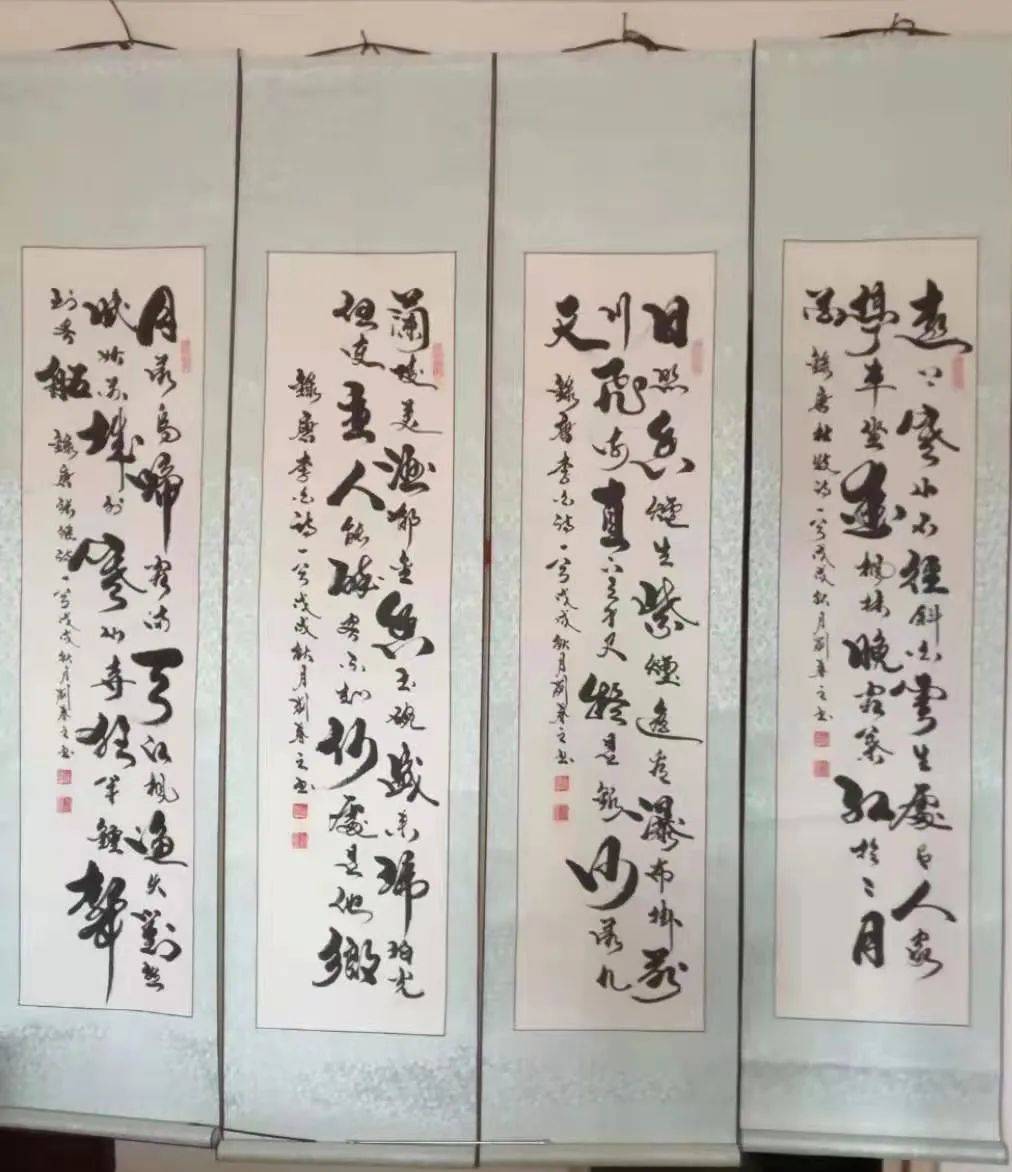 远上寒山石徑斜白雲生處有人家
停車坐愛枫林晚霜葉红於二月
花 錄唐杜牧詩一首戊戌秋月劉春之書
日照香爐生紫煙遙看瀑布掛前
川飛流直下三千尺疑是銀河落九
天 錄唐李白詩一首戊戌秋月劉春之書
蘭陵美酒郁金香玉碗盛來琥珀光
但使主人能醉客不知何處是他鄉
錄唐李白詩一首戊戌秋月劉春之書
月落烏啼霜滿天江枫漁火對愁
眠姑蘇城外寒山寺夜半鐘聲
到客船 錄唐張繼詩一首戊戌秋月劉春之書